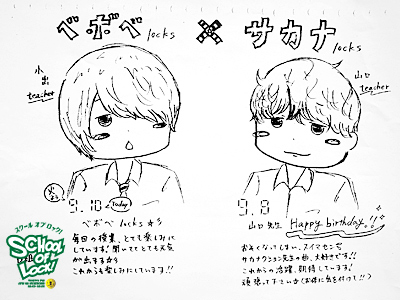 ベボベ locks × サカナ locks
小出
teacher
山口
teacher
火よう
9.10 Today
9.8
ベボベ locks ☆彡
毎回の授業、とても楽しみに
しています!! 聞いてて とても元気
が出ます☆彡
これからも楽しみにしています!!
山口先生 Happy birthday!!
おそくなってしまい、スイマセン💦
サカナクション先生の曲、大好きです!!
これからの活躍、期待しています!
頑張って下さい☆(お体に気を付けて!!)
スクール オブ ロック!
SCHOOL
OF
LOCK!